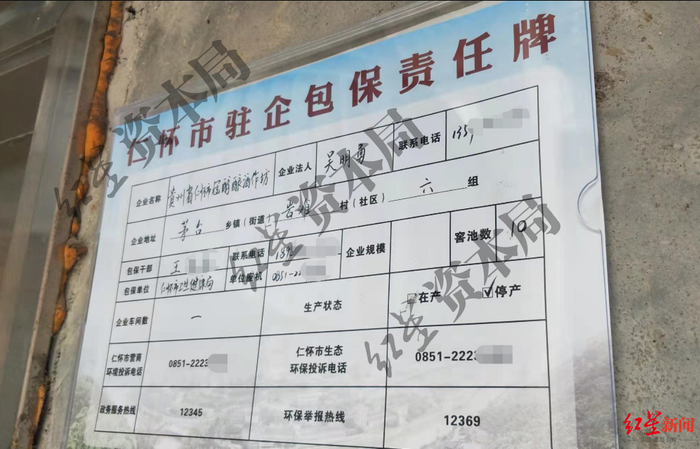 仁怀市驻企包保责任牌
企业名称 贵州省仁怀 酿酒作坊 企业法人 吴明勇 联系电话 135
企业地址 茅台 乡镇(街道) 岩滩 村(社区) 六 组
包保干部 王 联系电话 139 企业规模 窖池数 10
包保单位 仁怀市卫生健康局 单位座机 0851-22
企业车间数 一 生产状态 在产 停产
仁怀市营商环境投诉电话 0851-2223 仁怀市生态环保投诉电话 0851-2223
政务服务热线 12345 环保举报热线 12369
红星资本局
红星资本局
红星资本局
红星新闻